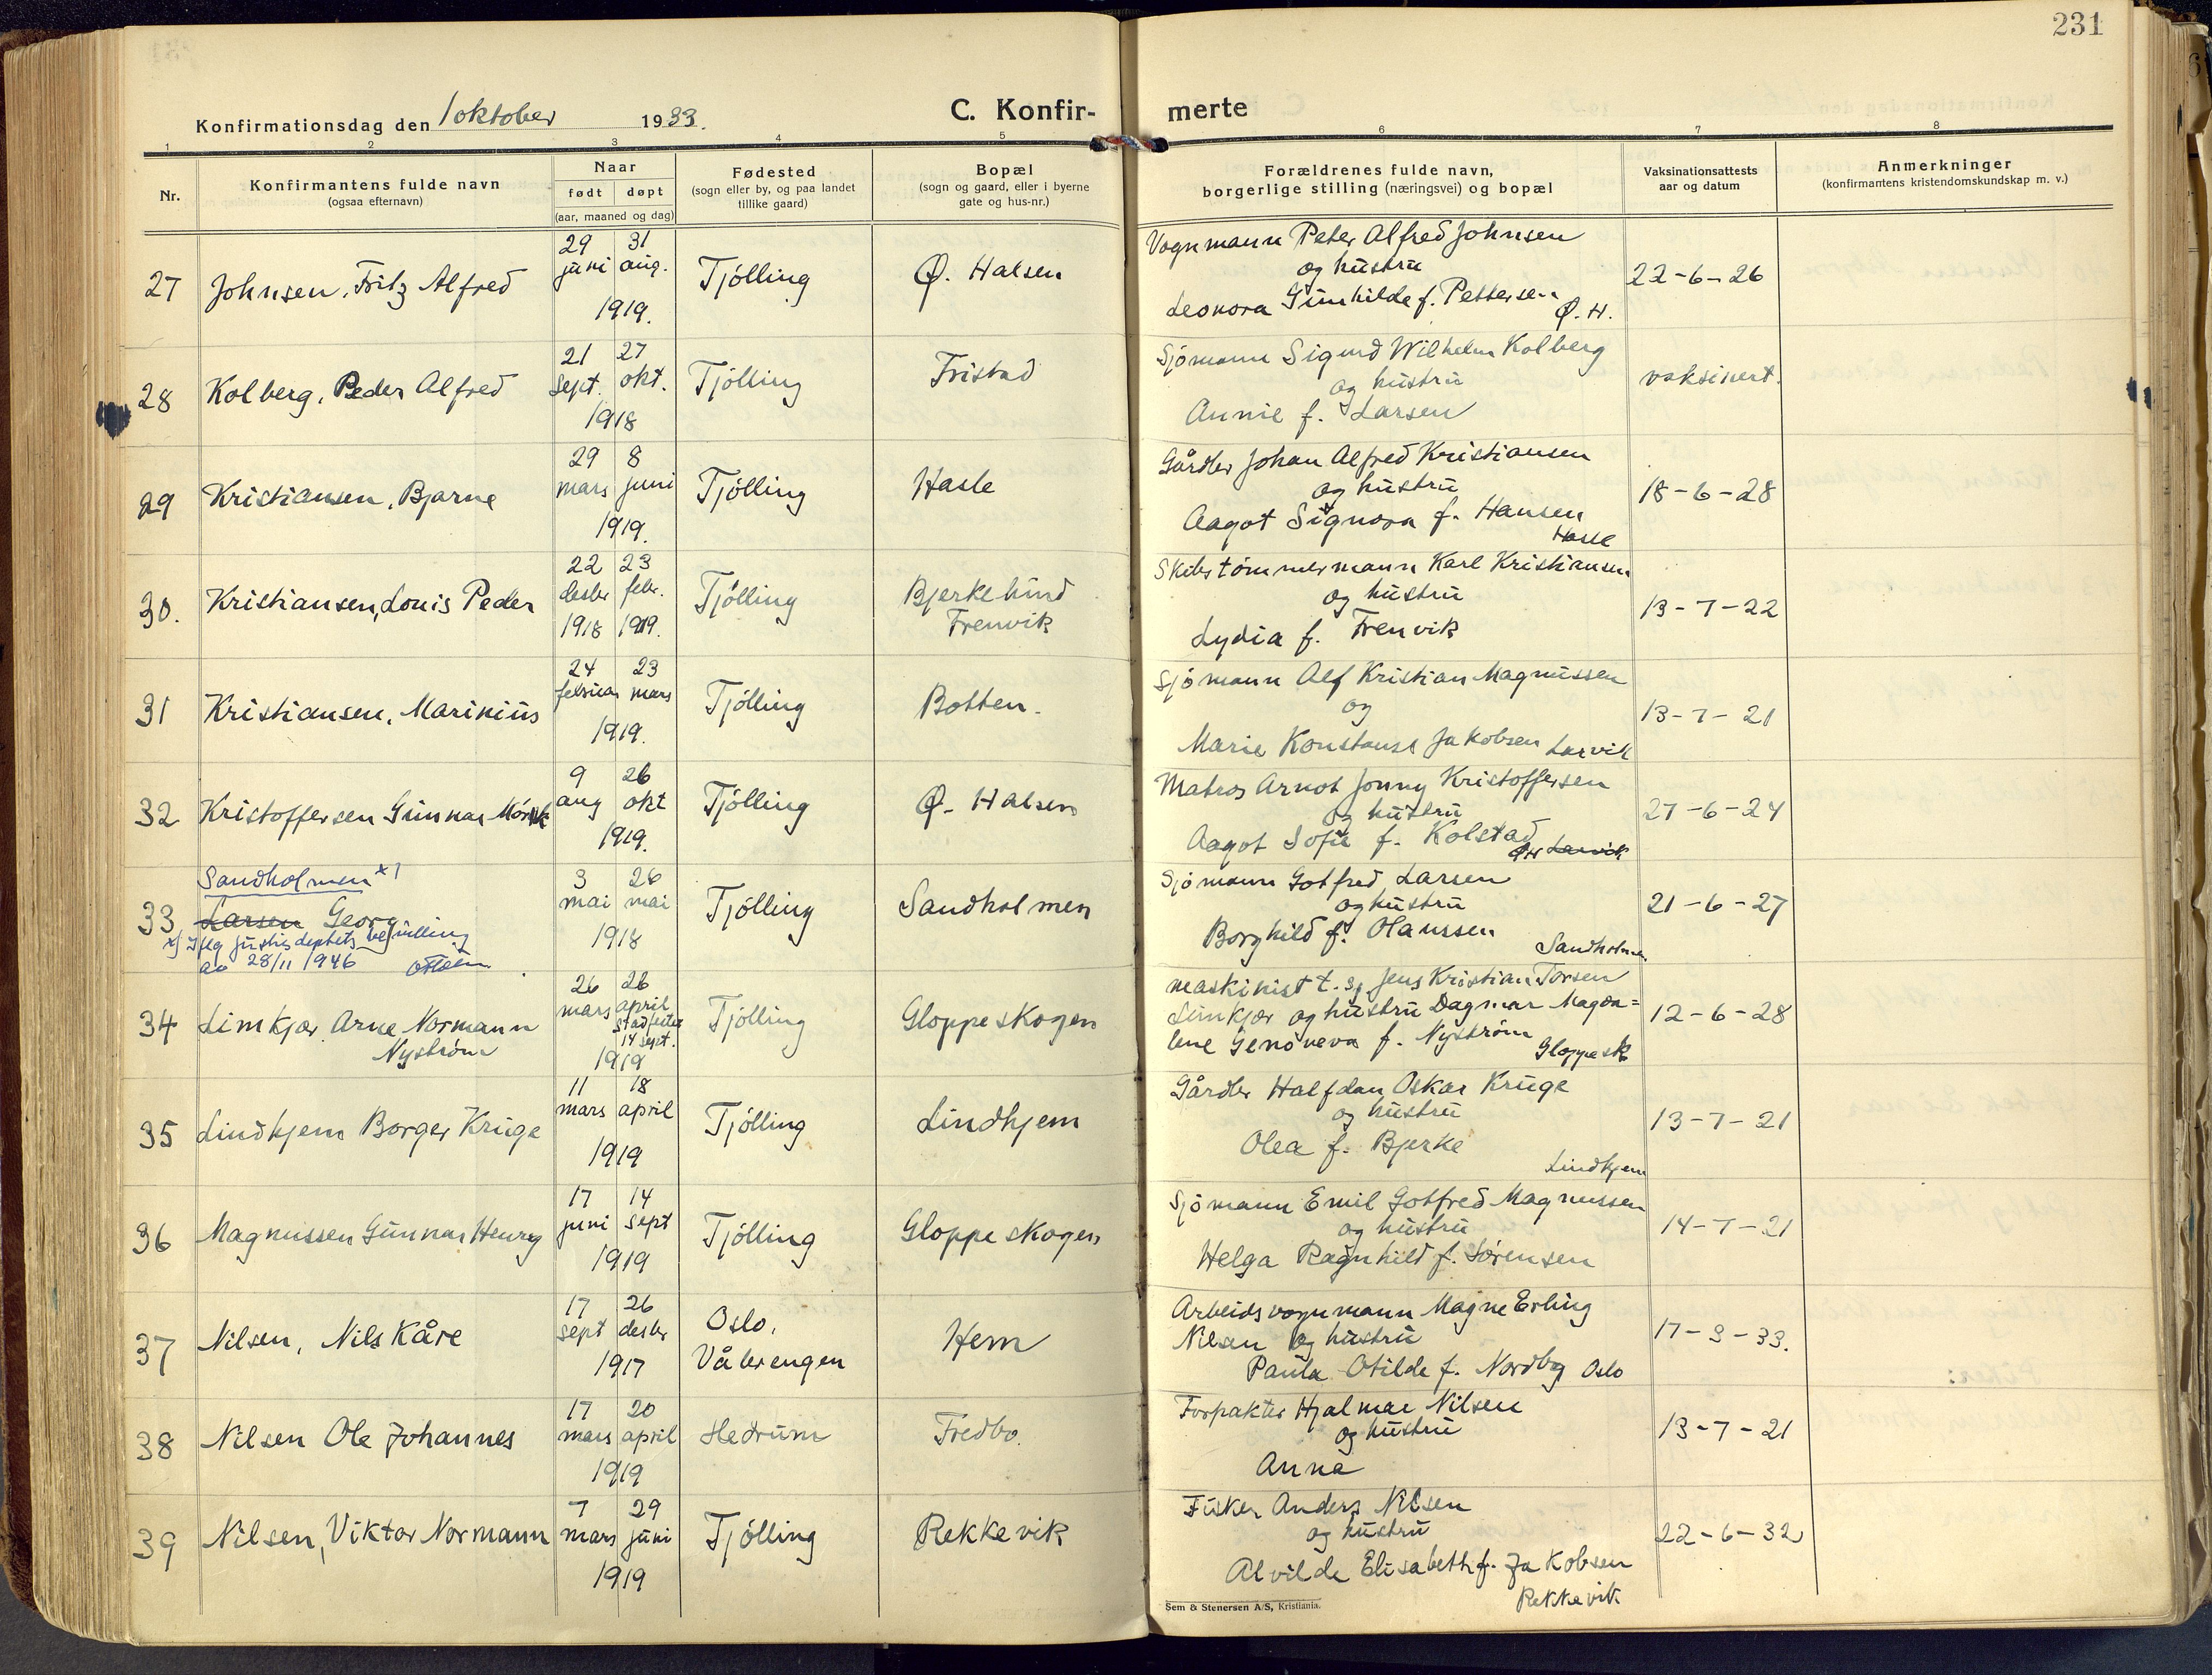 231
Konfirmationsdag den 1 oktober 1933.
C. Konfir-
merte
1 2 3 4 5 6 7 8
Nr.
Konfirmantens fulde navn
(ogsaa efternavn)
Naar
født døpt
(aar, maaned og dag)
Fødested
(sogn eller by, og paa landet
tillike gaard)
Bopæl
(sogn og gaard, eller i byerne
gate og hus-nr.)
Forældrenes fulde navn,
borgerlige stilling (næringsvei) og bopæl
Vaksinationsattests
aar og datum
Anmerkninger
(konfirmantens kristendomskundskap m. v.)
27
Johnsen, Fritz Alfred
29 31
juni aug.
1919.
Tjölling
Ø. Halsen
Vognmann Peter Alfred Johnsen
og hustru
Leonora Gunhilde f. Pettersen
Ø. H.
22-6-26
28
Kolberg, Peder Alfred
21 27
sept. okt.
1918
Tjölling
Fristad
Sjömann Sigurd Wilhelm Kolberg
og hustru
Annie f. Larsen
vaksinert.
29
Kristiansen, Bjarne
29 8
mars juni
1919.
Tjölling
Hasle
Gårdbr Johan Alfred Kristiansen
og hustru
Aagot Signora f. Hansen
Hasle
18-6-28
30.
Kristiansen, Louis Peder
22 23
desbr febr.
1918 1919.
Tjölling
Bjerkelund
Frenvik
Skibstömmermann Karl Kristiansen
og hustru
Lydia f. Frenvik
13-7-22
31
Kristiansen, Marinius
24 23
februar mars
1919.
Tjölling
Botten.
Sjömann Alf Kristian Magnussen
og
Marie Konstanse Jakobsen Larvik
13-7-21
32
Kristoffersen Gunnar Mörk
9 26
aug okt
1919.
Tjölling
Ø. Halsen
Matros Arnot Jonny Kristoffersen
og hustru
Aagot Sofie f. Kolstad
ØH Larvik
27-6-24
Sandholmen x)
33
Larsen Georg
x) Iflg justisdeptets bevilling
av 28/11 1946
3 26
mai mai
1918
Tjölling
Sandholmen
Sjömann Gotfred Larsen
og hustru
Borghild f. Olaussen
Sandholmen
21-6-27
34
Limkjær Arne Normann
Nyström
26 26
mars april
stadfestet
14 sept.
1919
Tjölling
Gloppeskogen
maskinist t. sj Jens Kristian Torsen
Limkjær og hustru Dagmar Magda=
lene Genoneva f. Nyström
Gloppesk
12-6-28
35
Lindhjem Borger Kruge
11 18
mars april
1919
Tjölling
Lindhjem
Gårdbr Halfdan Oskar Kruge
og hustru
Olea f. Bjerke
Lindhjem
13-7-21
36
Magnussen Gunnar Henry
17 14
juni sept
1919
Tjölling
Gloppeskogen
Sjömann Emil Gotfred Magnussen
og hustru
Helga Ragnhild f. Sörensen
14-7-21
37
Nilsen, Nils Kåre
17 26
sept desbr
1917
Oslo,
Vålerengen
Hem
Arbeidsvognmann Magne Erling
Nilsen og hustru
Paula Otilde f. Nordby Oslo
17-3-33.
38
Nilsen Ole Johannes
17 20
mars april
1919
Hedrum
Fredbo.
Forpakter Hjalmar Nilsen
og hustru
Anna
13-7-21
39
Nilsen, Viktor Normann
7 29
mars juni
1919
Tjölling
Rekkevik
Fisker Anders Nilsen
og hustru
Alvilde Elisabeth f. Jakobsen
Rekkevik
22-6-32
Sem & Stenersen A/S, Kristiania.